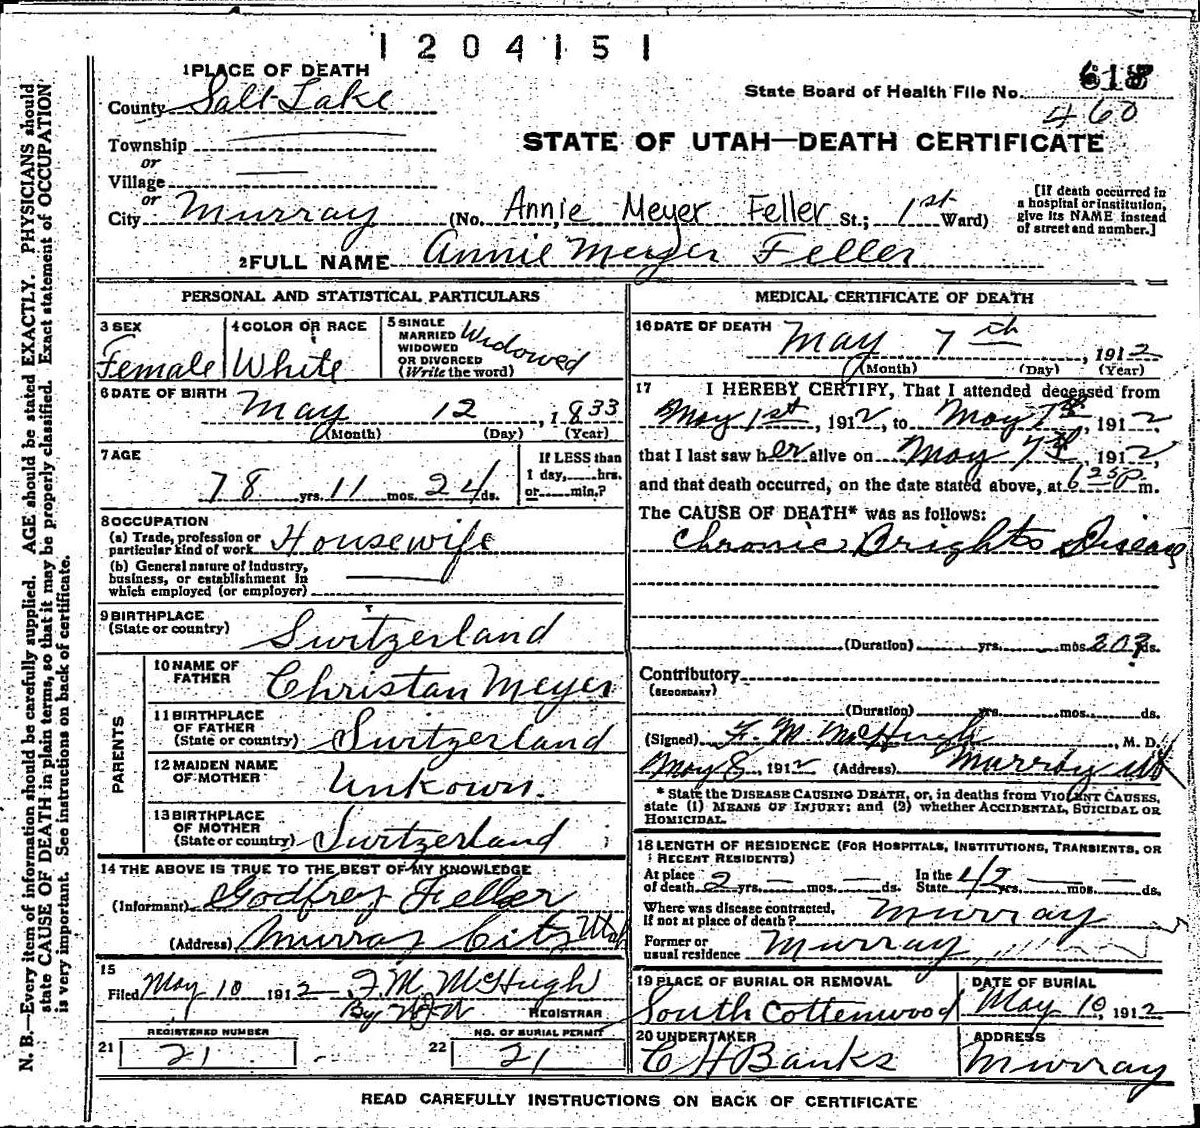 1204151
1 PLACE OF DEATH
County Salt Lake
State Board of Health File No.
460
Township
or
Village
or
STATE OF UTAH—DEATH CERTIFICATE
City Murray (No. Annie Meyer Feller St.; 1st Ward)
[If death occurred in a hospital or institution, give its NAME instead of street and number.]
2 FULL NAME Annie Meyer Feller
PERSONAL AND STATISTICAL PARTICULARS
3 SEX Female
4 COLOR OR RACE White
5 SINGLE MARRIED WIDOWED OR DIVORCED (Write the word) Widowed
6 DATE OF BIRTH May 12, 1833
(Month) (Day) (Year)
7 AGE 78 yrs. 11 mos. 24 ds.
If LESS than 1 day,.....hrs. or.....min.?
8 OCCUPATION
(a) Trade, profession or particular kind of work Housewife
(b) General nature of industry, business, or establishment in which employed (or employer)
9 BIRTHPLACE (State or country) Switzerland
PARENTS
10 NAME OF FATHER Christan Meyer
11 BIRTHPLACE OF FATHER (State or country) Switzerland
12 MAIDEN NAME OF MOTHER Unkown.
13 BIRTHPLACE OF MOTHER (State or country) Switzerland
14 THE ABOVE IS TRUE TO THE BEST OF MY KNOWLEDGE
(Informant) Godfrey Feller
(Address) Murray City Utah
15 Filed May 10 1912 F. M. McHugh
By REGISTRAR
REGISTERED NUMBER
21 21
NO. OF BURIAL PERMIT
22 21
MEDICAL CERTIFICATE OF DEATH
16 DATE OF DEATH May 7th, 1912
(Month) (Day) (Year)
17 I HEREBY CERTIFY, That I attended deceased from
May 1st, 1912, to May 7th, 1912,
that I last saw her alive on May 7th, 1912,
and that death occurred, on the date stated above, at 6 25 P m.
The CAUSE OF DEATH* was as follows:
Chronic Brights Disease
(Duration) yrs. mos. ds.
Contributory
(SECONDARY)
(Duration) yrs. mos. ds.
(Signed) F. M. McHugh, M. D.
May 8, 1912 (Address) Murray Ut
* State the DISEASE CAUSING DEATH, or, in deaths from VIOLENT CAUSES, state (1) MEANS OF INJURY; and (2) whether ACCIDENTAL, SUICIDAL OR HOMICIDAL.
18 LENGTH OF RESIDENCE (FOR HOSPITALS, INSTITUTIONS, TRANSIENTS, OR RECENT RESIDENTS)
At place of death 2 yrs. — mos. — ds. In the State 42 yrs. — mos. — ds.
Where was disease contracted, if not at place of death? Murray
Former or usual residence Murray
19 PLACE OF BURIAL OR REMOVAL South Cottenwood
DATE OF BURIAL May 10, 1912
20 UNDERTAKER C H Banks
ADDRESS Murray
READ CAREFULLY INSTRUCTIONS ON BACK OF CERTIFICATE
N. B.—Every item of information should be carefully supplied. AGE should be stated EXACTLY. PHYSICIANS should
state CAUSE OF DEATH in plain terms, so that it may be properly classified. Exact statement of OCCUPATION
is very important. See instructions on back of certificate.